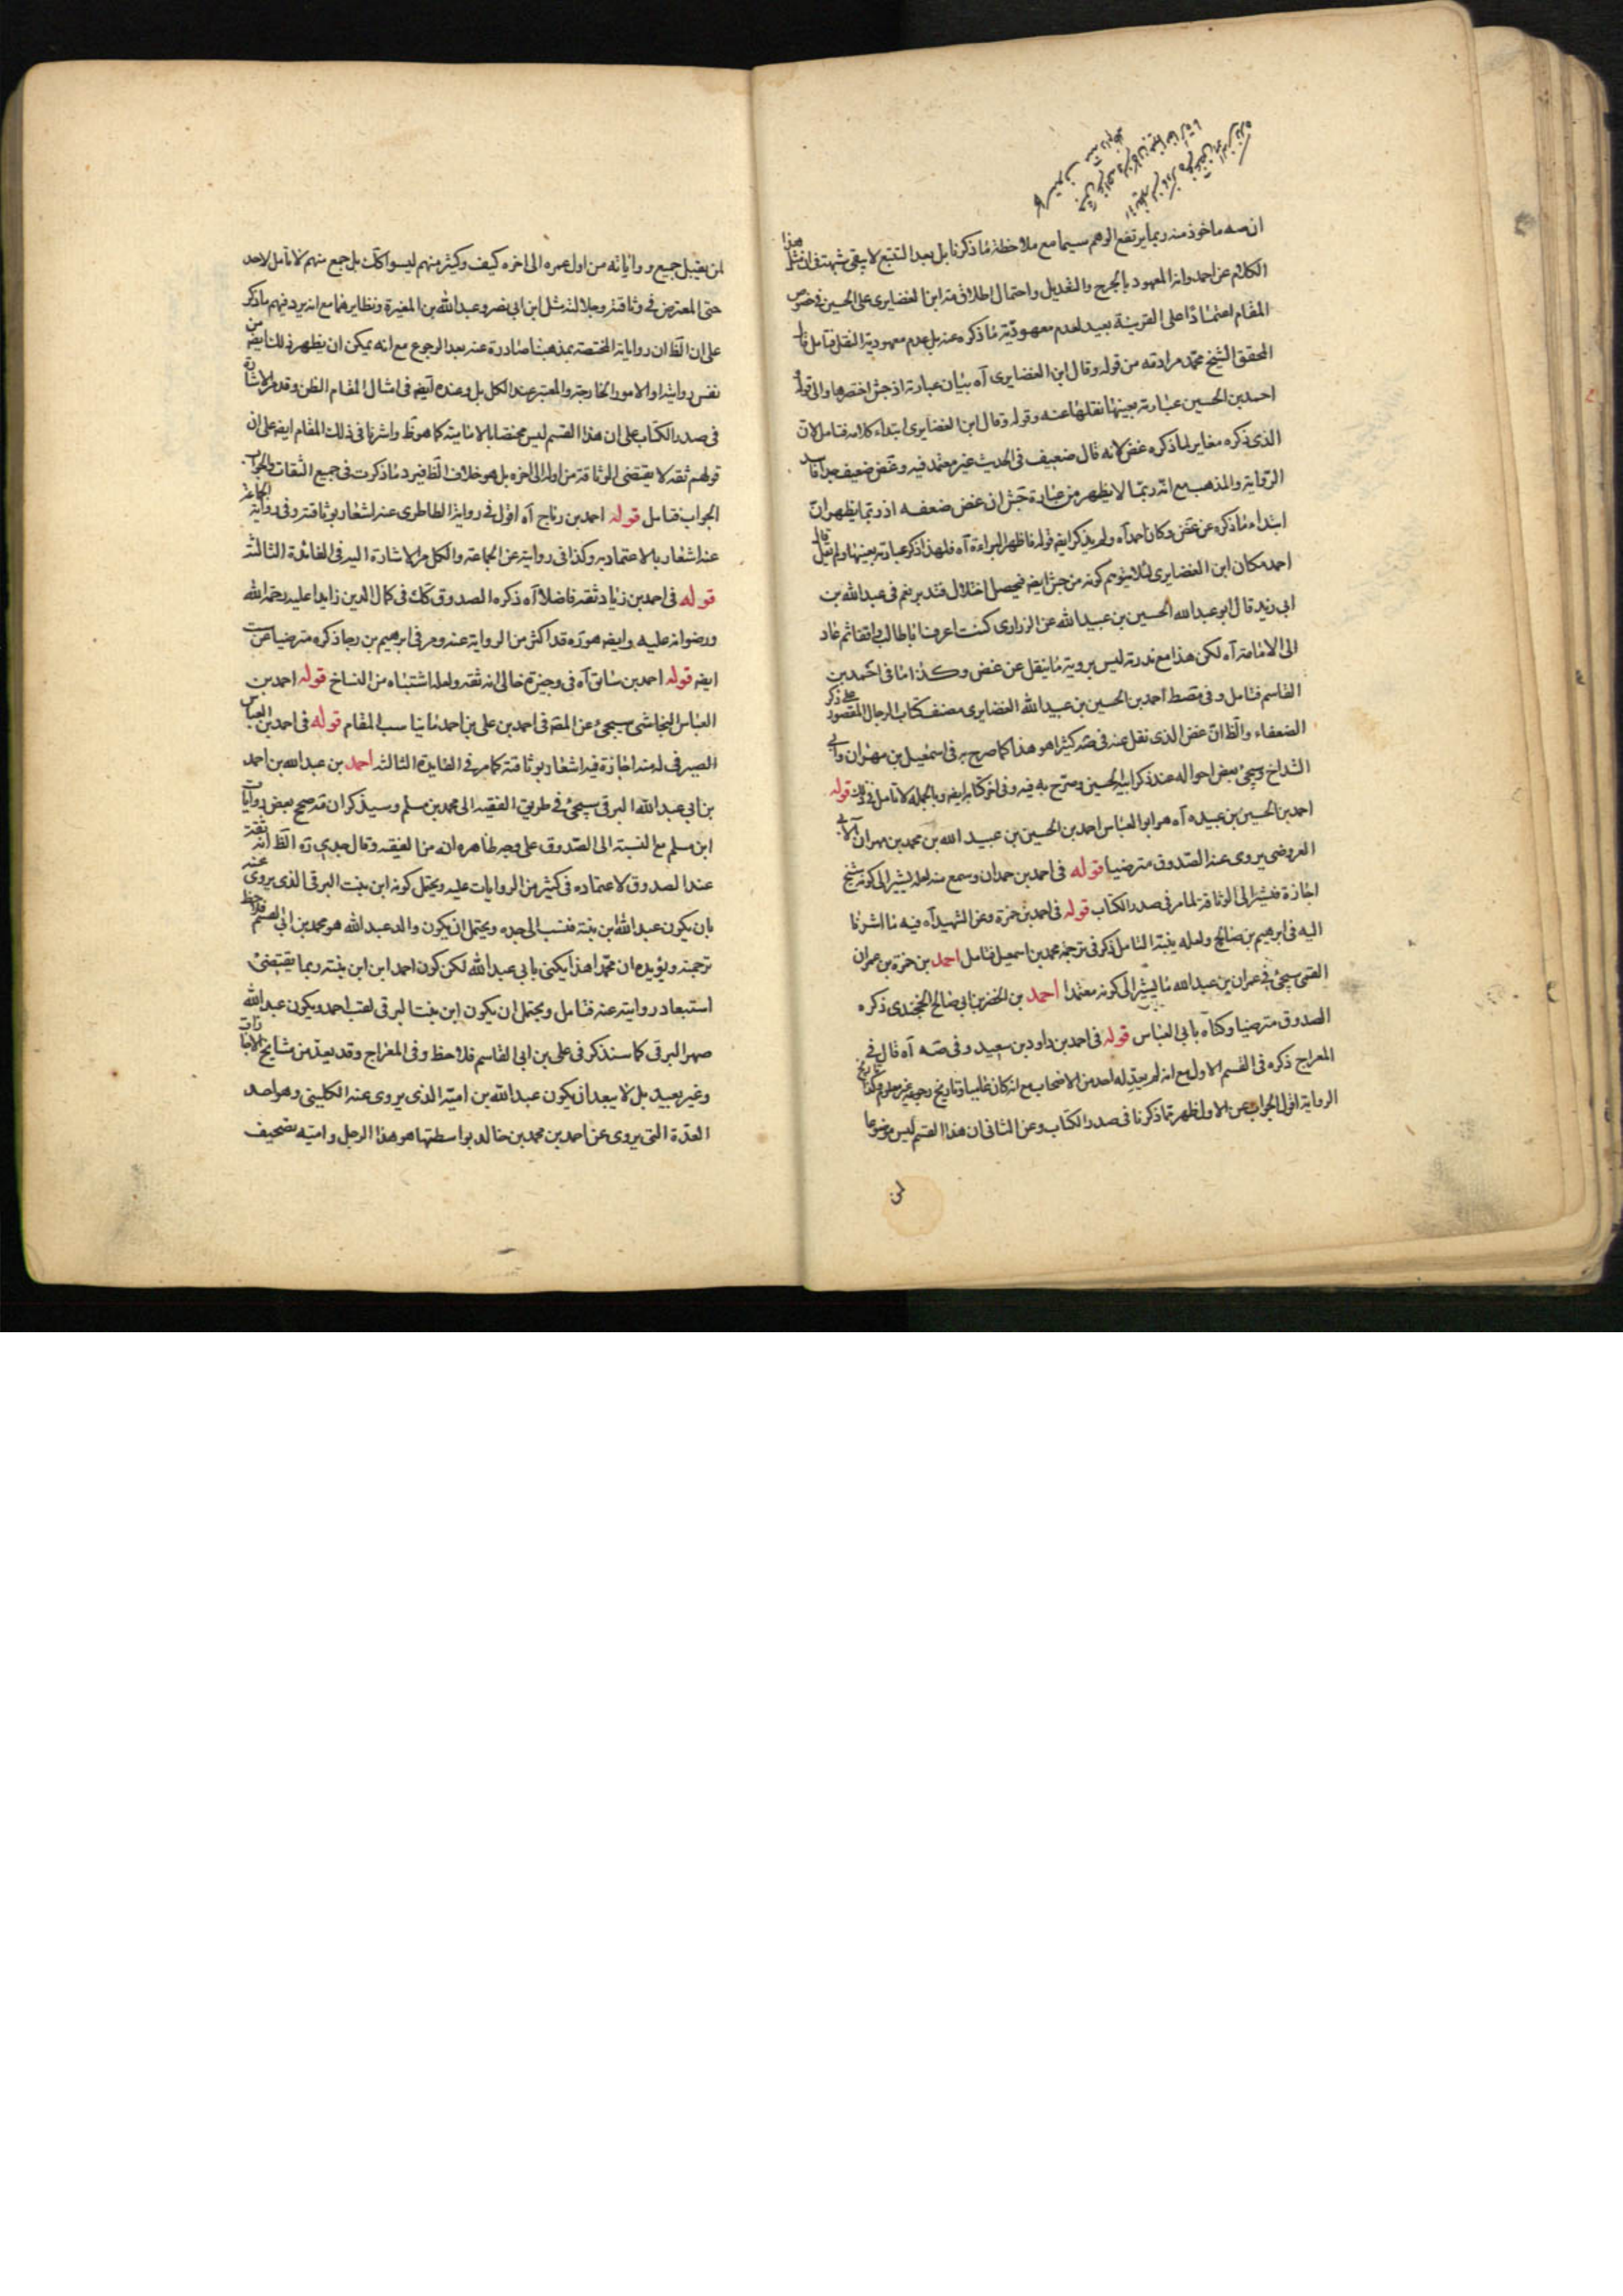 ان صه ماخوذ منه ربما يرتفع الوهم سيما مع ملاحظة ما ذكرنا بل بعد التتبع لا يبقى شبهة فى ان مثل هذا
الكلام عن احمد وانه المعهود بالجرح والتعديل واحتمال اطلاق مثه ابن الغضايرى على الحسين فى خصوص
المقام اعتمادا على القرينة بعيد لعدم معهودية ما ذكره عنه بل عدم معهودية النقل فتامل قال
المحقق الشيخ محمد مراد مه من قوله وقال ابن الغضايرى آه بيان عبارته اذ جش اختصرها والى قوله
احمد بن الحسين عبارته بعينها نقلها عنه وقوله وقال ابن الغضايرى ابتداء كلامه فتامل لان
الذى ذكره مغاير لما ذكره غض لانه قال ضعيف فى الحديث غير معتمد فيه وغض ضعيف جدا فاسد
الرواية والمذهب مع انه ربما لا يظهر من عبارة جش ان غض ضعفه اذ ربما يظهر ان
ابتداء ما ذكره عن غض وكان احمد آه ولم يذكر ايضه قوله فاظهر البراءة آه فلهذا ذكر عبارته بعينها ولم يقل قال
احمد مكان ابن الغضايرى لئلا يتوهم كونه من جش ايضه فيحصل اختلال فتدبر نعم فى عبد الله بن
ابى زيد قال ابو عبد الله الحسين بن عبيد الله عن الزرارى كنت اعرف ابا طالب واقفا ثم عاد
الى الامامة آه لكن هذا مع ندرته ليس بروية ما ينقل عن غض وكذا ما فى احمد بن
القاسم فتامل وفى مصط احمد بن الحسين بن عبيد الله الغضايرى مصنف كتاب الرجال المقصور على ذكر
الضعفاء والظ ان غض الذى نقل عنه فى صه كثيرا هو هذا كما صرح به فى اسمعيل بن مهران وابى
الشداخ ويجئ بعض احواله عند ذكر ابيه الحسين ومصرح به فيه وفى اخر كتابه ايضه وبالجملة لا تامل فى ذلك قوله
احمد بن الحسين بن عبيده آه هو ابو العباس احمد بن الحسين بن عبيد الله بن محمد بن مهران الآبى
العروضى يروى عنه الصدوق مترضيا قوله فى احمد بن حمدان وسمع منه لعله يشير الى كونه شيخ
اجازة فيشير الى الوثاقة لما مر فى صدر الكتاب قوله فى احمد بن حمزة وعن الشهيد آه فيه ما اشرنا
اليه فى ابرهيم بن صالح ولعله ينبه التامل ذكر فى ترجمة محمد بن اسمعيل فتامل احمد بن حمزة بن عمران
القمى سيجئ فى عمران بن عبد الله ما يشير الى كونه معتمدا احمد بن الخضر بن ابى صالح الخجندى ذكره
الصدوق مترضيا وكناه بابى العباس قوله فى احمد بن داود بن سعيد وفى صه آه قال فى
المعراج ذكره فى القسم الاول مع انه لم يعدله احد من الاصحاب مع انه كان عاميا وتاريخ رجوعه غير معلوم وكذا تاريخ
الرواية اقول الجواب عن الاول ظهر مما ذكرنا فى صدر الكتاب وعن الثانى ان هذا القسم ليس موضوعا
لمن
لمن يقبل جميع رواياته من اول عمره الى اخره كيف وكثير منهم ليسوا كك بل جمع منهم لا تامل لاحد
حتى المعترض فى وثاقته وجلالته مثل ابن ابى نصر وعبد الله بن المغيرة ونظايرهما مع انه يرد فيهم ما ذكر
على ان الظ ان رواياته المختصة بمذهبنا صادرة عنه بعد الرجوع مع انه يمكن ان يظهر ذلك ايضه من
نفس روايته او الامور الخارجة والمعتبر عند الكل بل وعنده ايضه فى امثال المقام الظن وقد مر الاشارة
فى صدر الكتاب على ان هذا القسم ليس مختصا بالامامية كما هو ظ واشرنا فى ذلك المقام ايضه على ان
قولهم ثقه لا يقتضى الوثاقة من اوله الى اخره بل هو خلاف الظ فيرد ما ذكرت فى جميع الثقات والجواب
الجواب فتامل قوله احمد بن رباح آه اقول فى رواية الطاطرى عنه اشعار بوثاقته وفى رواية الجماعة
عنه اشعار بالاعتماد به وكذا فى روايته عن الجماعة والكل مر الاشارة اليه فى الفائدة الثالثة
قوله فى احمد بن زياد ثقه فاضلا آه ذكره الصدوق كك فى كمال الدين زايدا عليه رحمة الله
ورضوانه عليه وايضه هو ره قد اكثر من الرواية عنه ومر فى ابرهيم بن رجا ذكره مترضيا عن ست
ايضه قوله احمد بن سابق آه فى وجيزة خالى انه ثقه ولعله اشتباه من النساخ قوله احمد بن
العباس النجاشى سيجئ عن المصه فى احمد بن على بن احمد ما يناسب المقام قوله فى احمد بن العباس
الصيرفى له منه اجازة فيه اشعار بوثاقته كما مر فى الفايدة الثالثه احمد بن عبد الله بن احمد
بن ابى عبد الله البرقى سيجئ فى طريق الفقيه الى محمد بن مسلم وسيذكر ان مه صحح بعض روايات
ابن مسلم مع النسبة الى الصدوق على وجه ظاهره انه من الفقيه وقال جدى ره الظ انه ثقة
عند الصدوق لاعتماده فى كثير من الروايات عليه ويحتمل كونه ابن بنت البرقى الذى يروى عنه
بان يكون عبد الله ابن بنته فنسب الى جده ويحتمل ان يكون والد عبد الله هو محمد بن ابى القسم فلاحظ
ترجمته ويؤيده ان محمدا هذا يكنى بابى عبد الله لكن كون احمد ابن ابن بنته ربما يقتضى
استبعاد روايته عنه فتامل ويحتمل ان يكون ابن بنت البرقى لقب احمد ويكون عبد الله
صهر البرقى كما سنذكر فى على بن ابى القاسم فلاحظ وفى المعراج وقد يعد من مشايخ الاجازات
وغير بعيد بل لا يبعد ان يكون عبد الله بن امية الذى يروى عنه الكلينى وهو احد
العدة التى يروى عن احمد بن محمد بن خالد بواسطتها هو هذا الرجل وامية تصحيف